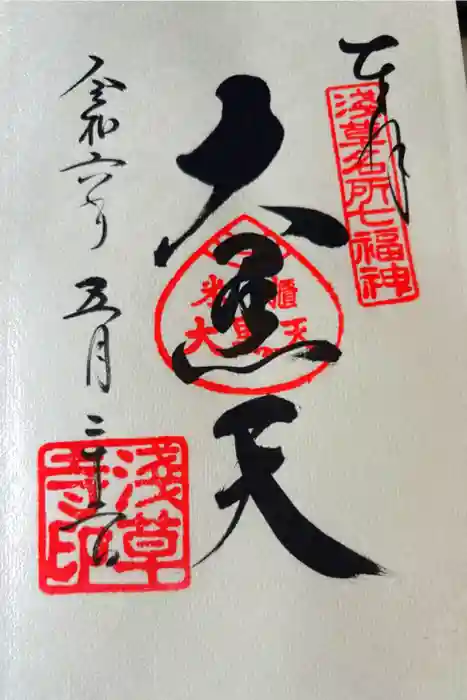 奉拝
淺草名所七福神
大黒天
米櫃
大黒天
令和六年五月二十六日
淺草寺印